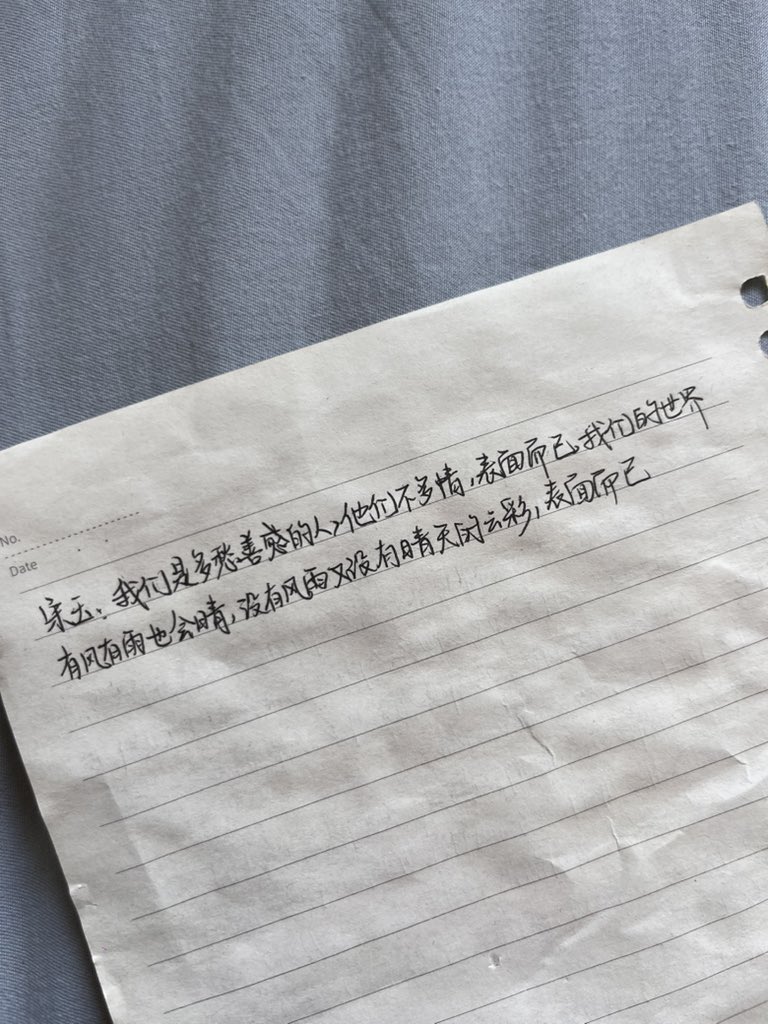 No.
Date
宋玉:我们是多愁善感的人,他们不多情,表面而已.我们的世界
有风有雨也会晴,没有风雨又没有晴天的云彩,表面而已